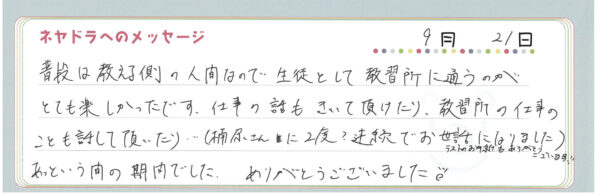 ネヤドラへのメッセージ
9月 21日
普段は教える側の人間なので生徒として教習所に通うのが
とても楽しかったです。仕事の話もきいて頂けたり、教習所の仕事の
ことも話して頂いたり…(楠原さんに2度?連続でお世話になりました)
テストのお時間もありがとう
ございます!!
あっという間の期間でした。ありがとうございました